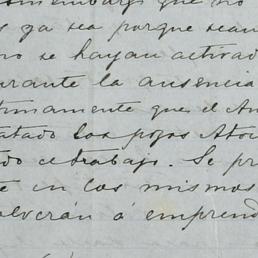 embargo que no
s ya sea porque sean
no se hayan activado
urante la ausencia
timamente que el An
atado los pozos Atoc
do el trabajo. Se pr
te en los mismos
olverán á emprend